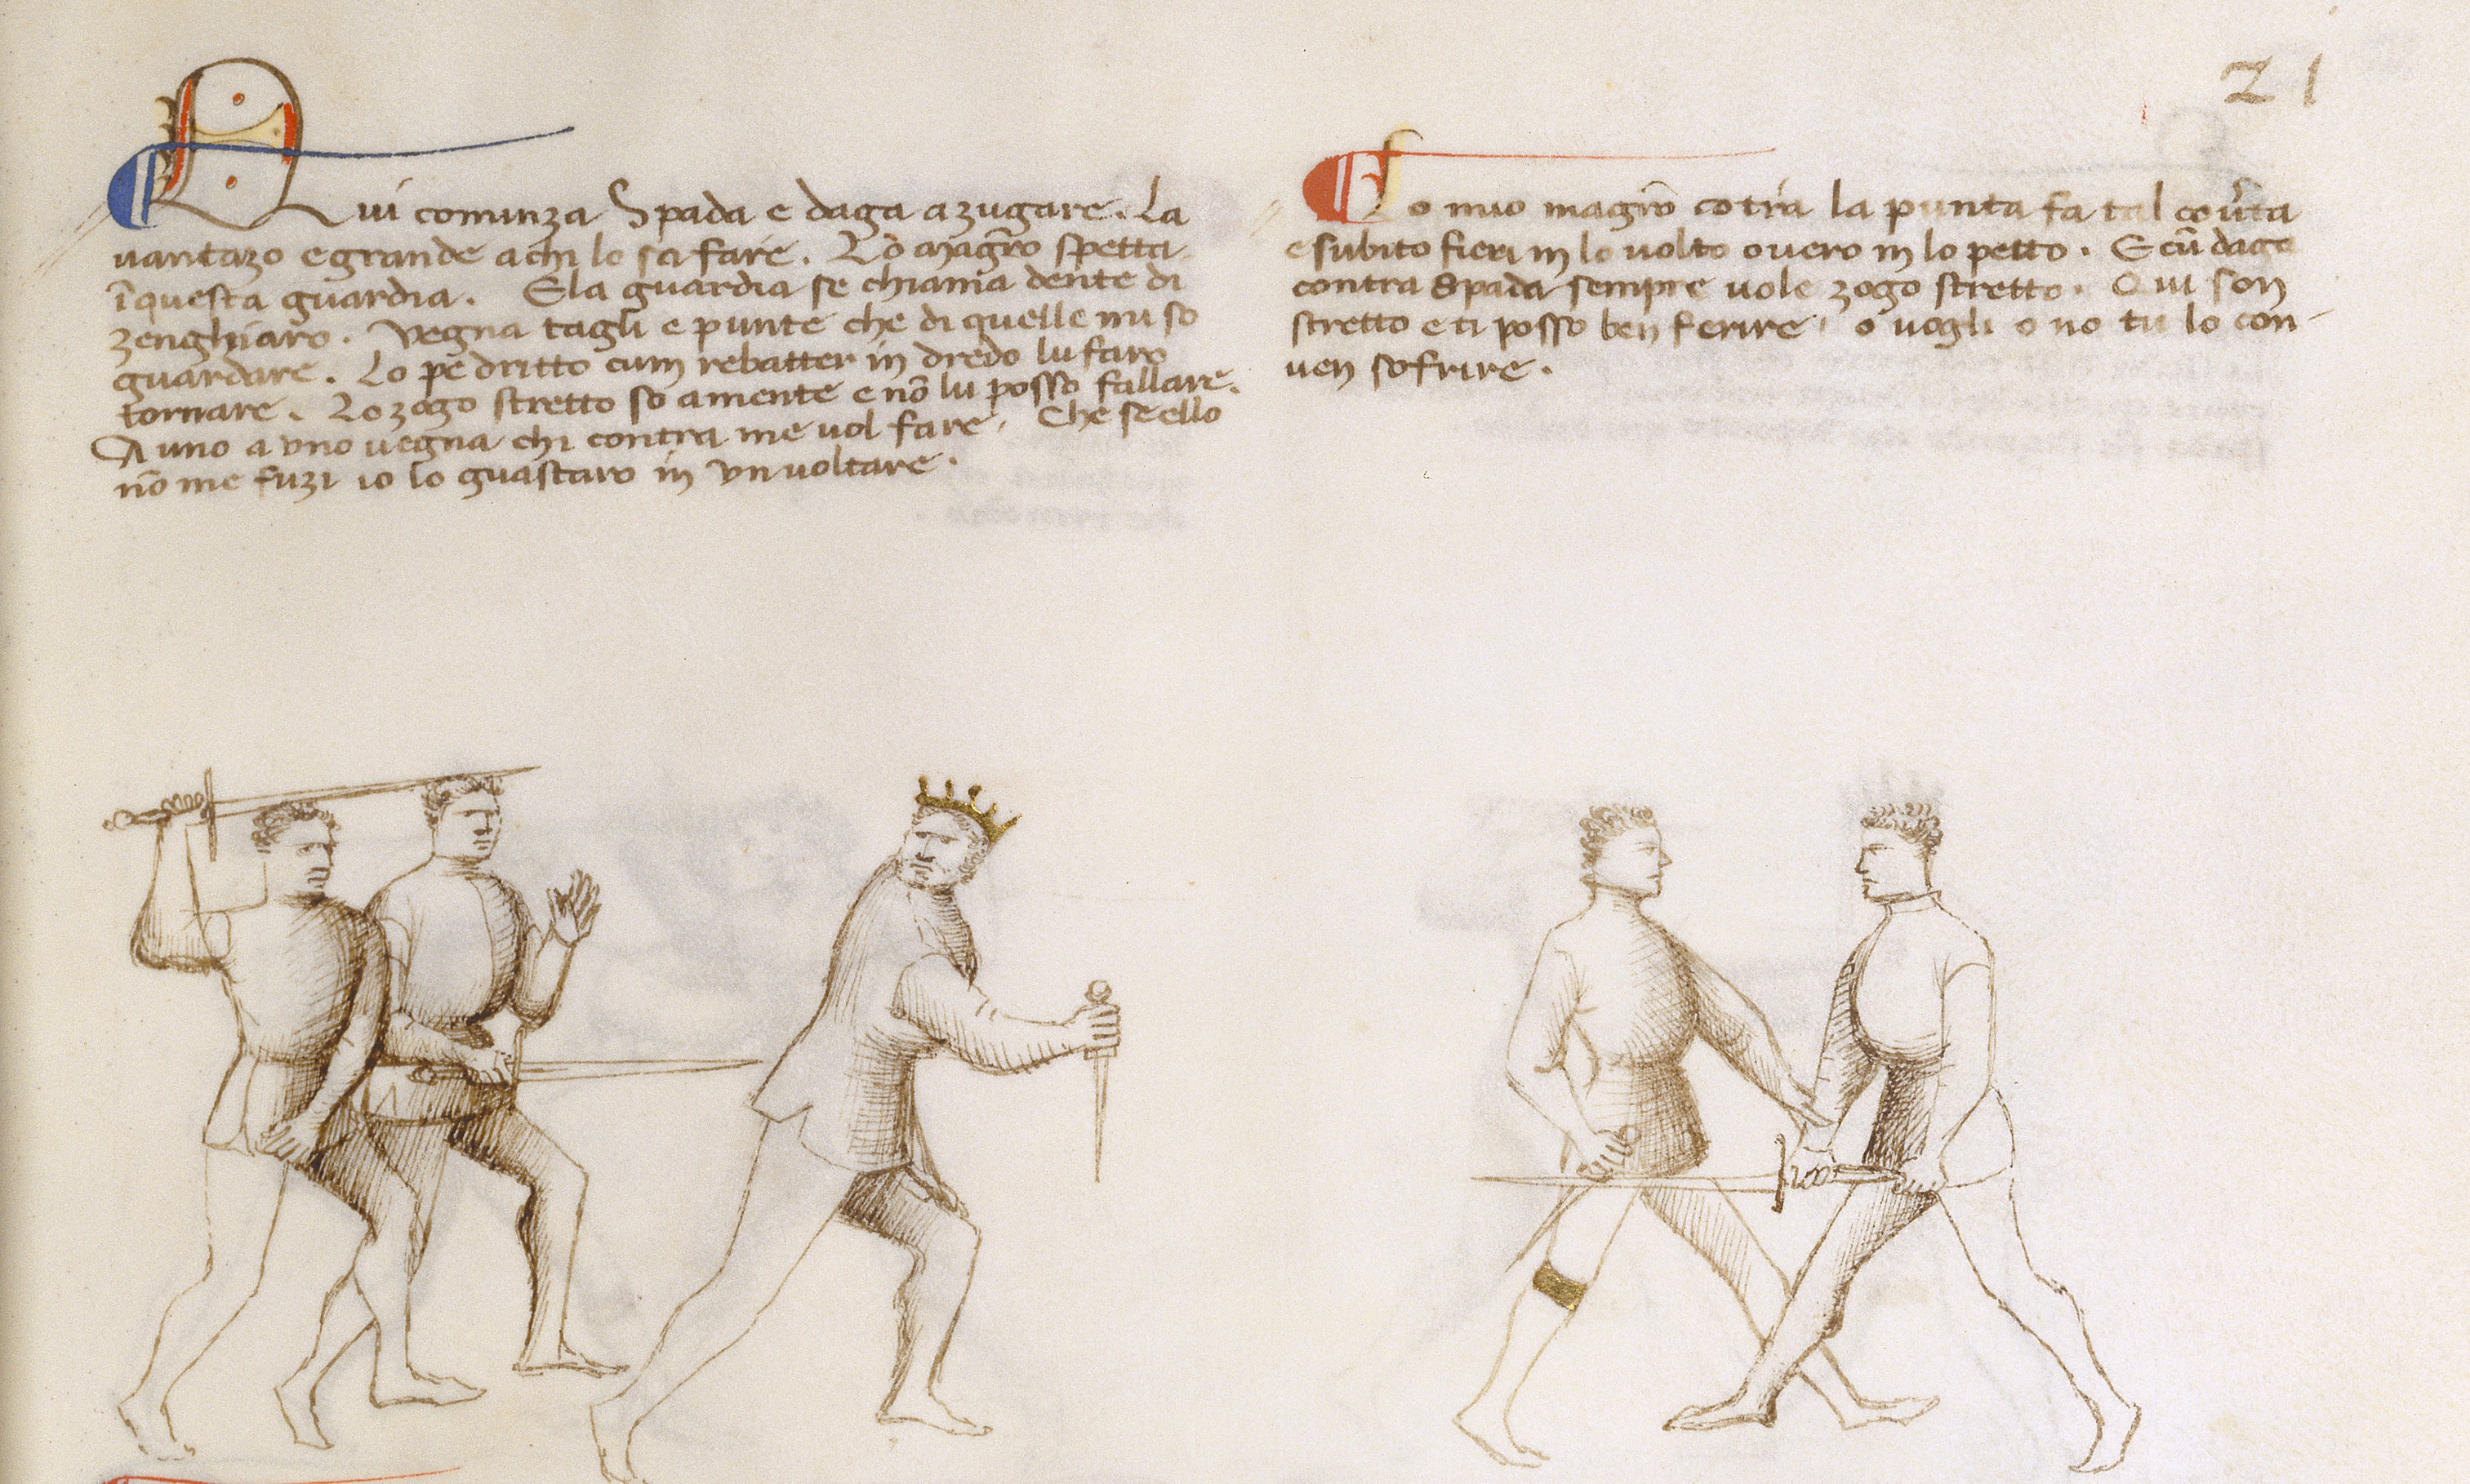 21
Qui cominza Spada e daga a zugare. La
vantazo e grande a chi lo sa fare. Lo magr̄o spetta
ī questa guardia. E la guardia se chiama dente di
zenghiaro. Vegna tagli e punte che di quelle mi so
guardare. Lo pe dritto cum rebatter in dredo lu faro
tornare. Lo zogo stretto so a mente e nō lu posso fallare.
A uno a uno vegna chi contra me vol fare. Che se ello
nō me fuzi io lo guastaro in un voltare.
Lo mio magr̄o cōtra la punta fa tal cov̄ta
e subito fieri in lo volto overo in lo petto. E cū daga
contra Spada sempre vole zogo stretto. Qui son
stretto e ti posso ben ferire, o vogli o no tu lo con-
ven sofrire.